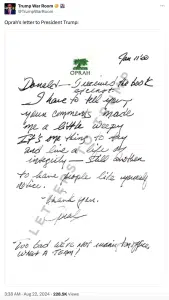 Trump War Room
@TrumpWarRoom
Oprah's letter to President Trump:
Jan 11 '00
OPRAH
Donald - I received the book
excerpt
I have to tell you
your comments made
me a little weepy
It's one thing to try
and live a life of
integrity - still another
to have people like yourself
notice.
Thank you.
Too bad we're not running for office.
WHAT A TEAM!
LETTERS TO TRUMP
9:38 AM · Aug 22, 2024 · 228.5K Views